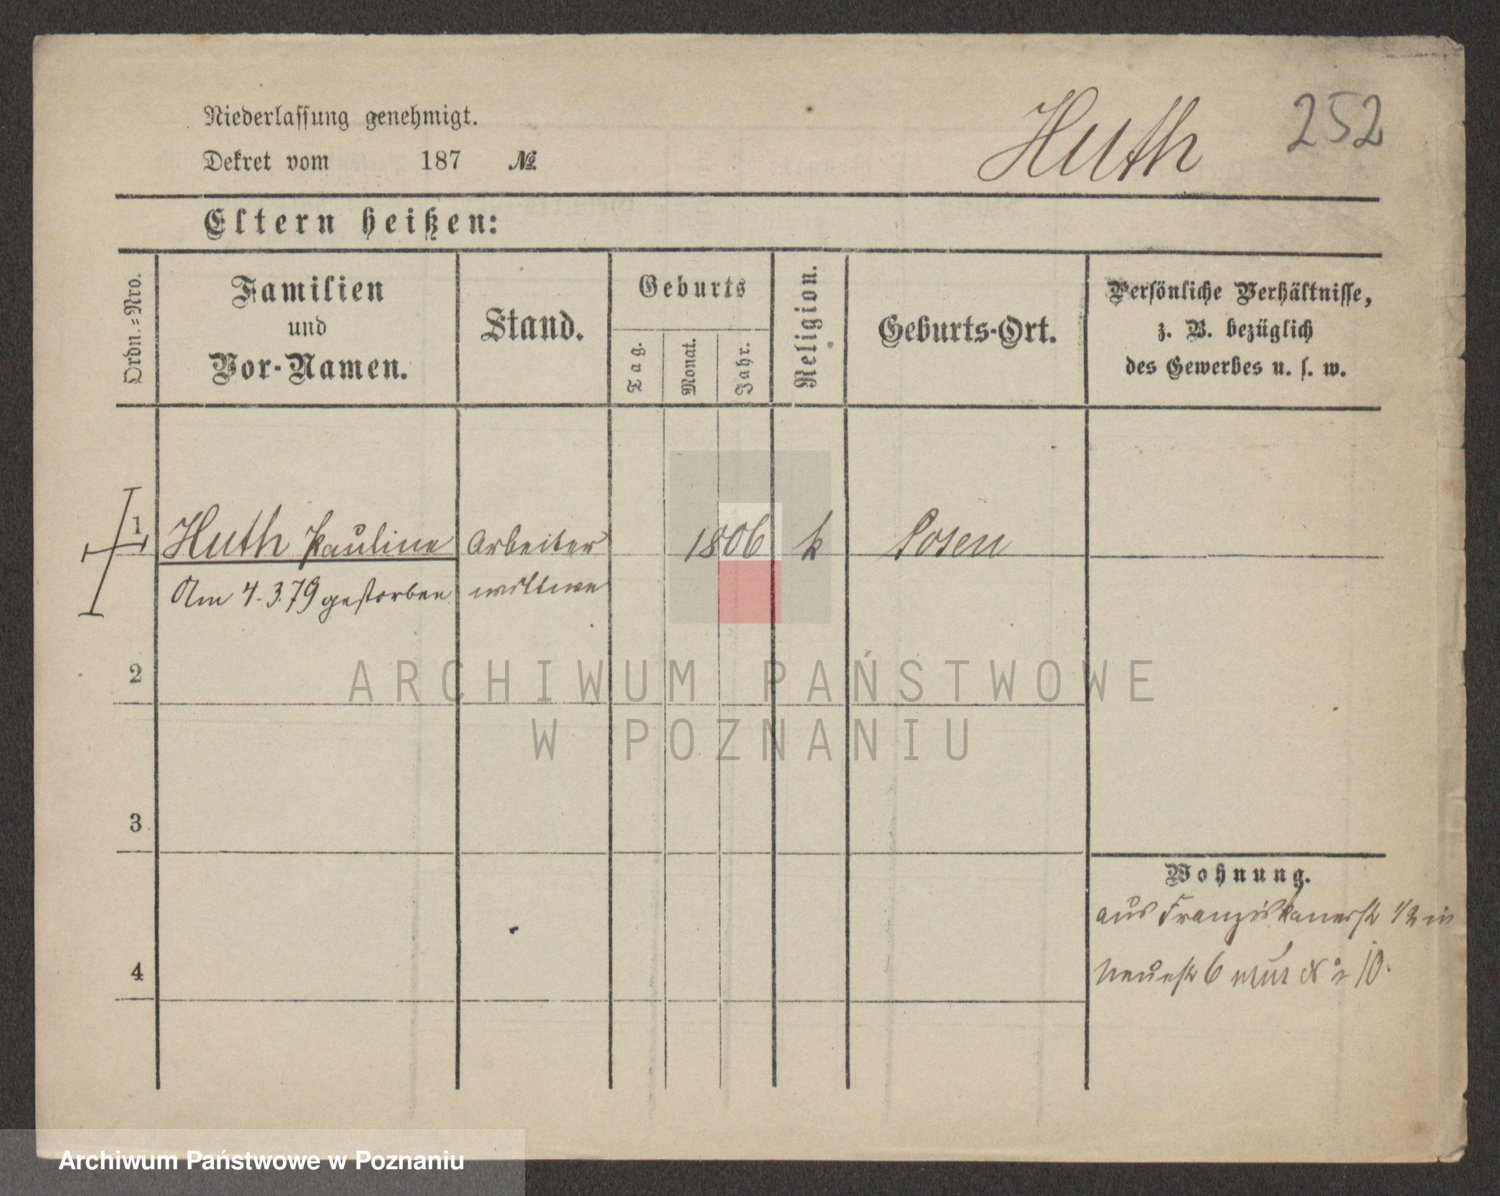 Niederlassung genehmigt.
Dekret vom 187 №
Huth
252
Eltern heißen:
Ordn.-Nro.
Familien
und
Vor-Namen.
Stand.
Geburts
Tag.
Monat.
Jahr.
Religion.
Geburts-Ort.
Persönliche Verhältnisse,
z. B. bezüglich
des Gewerbes u. s. w.
1 Huth Pauline Arbeiter 1806 k Posen
Am 4.3.79 gestorben wittwe
2
3
4
Wohnung.
aus Franziskanerstr 1/2 in
Neuestr 6 10.
ARCHIWUM PAŃSTWOWE
W POZNANIU
Archiwum Państwowe w Poznaniu